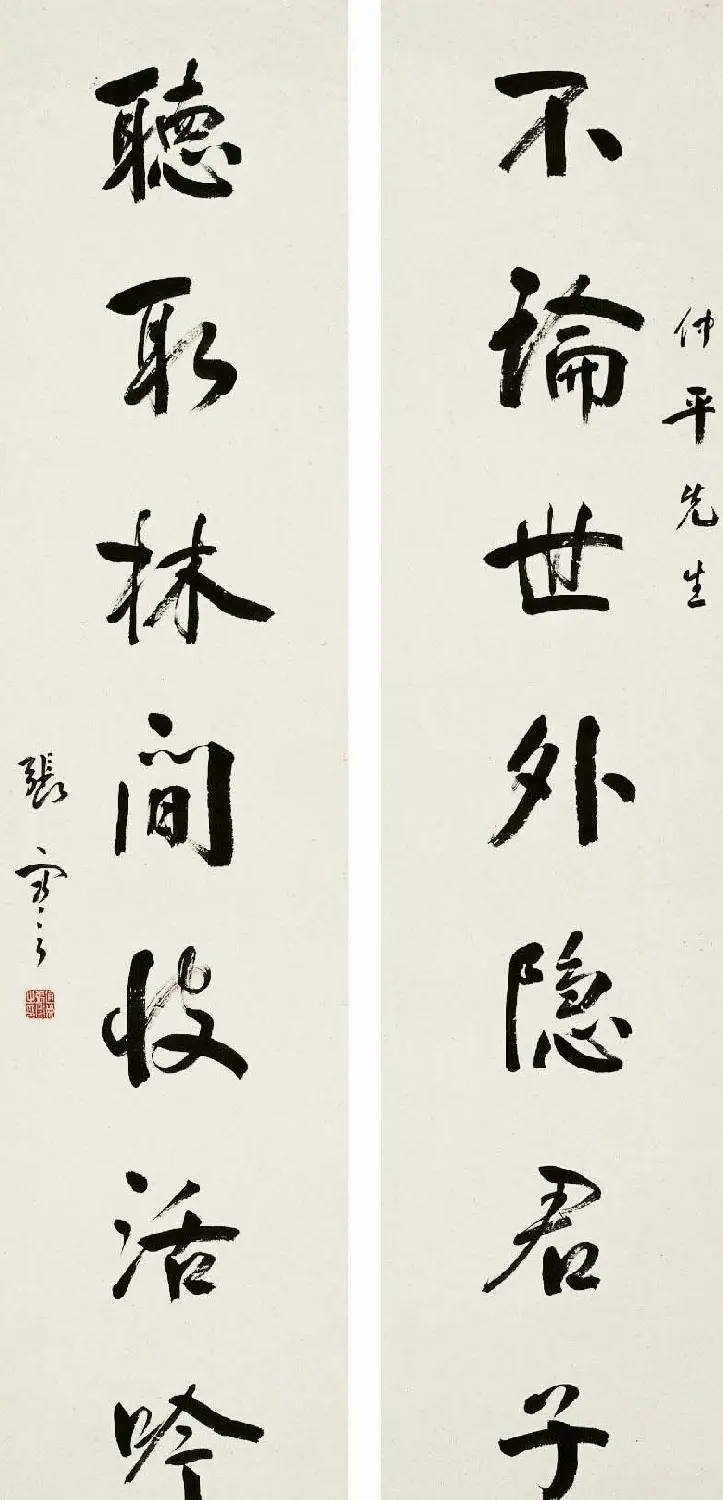 仲平先生
不論世外隱君子
聽取林間快活吟
張謇